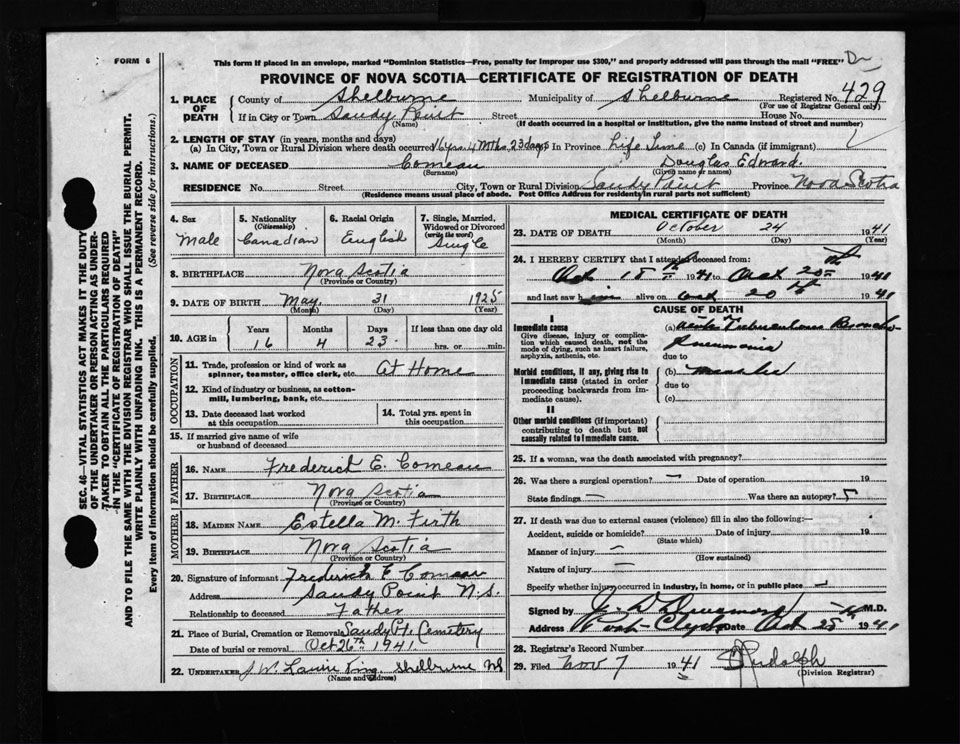 FORM 6
This form if placed in an envelope, marked "Dominion Statistics—Free, penalty for improper use $300," and properly addressed will pass through the mail "FREE"
PROVINCE OF NOVA SCOTIA—CERTIFICATE OF REGISTRATION OF DEATH
1. PLACE OF DEATH County of Shelburne Municipality of Shelburne Registered No. 429
(For use of Registrar General only)
If in City or Town Sandy Point Street House No.
(Name) (If death occurred in a hospital or institution, give the name instead of street and number)
2. LENGTH OF STAY (in years, months and days)
(a) In City, Town or Rural Division where death occurred 16 yrs. 4 Mths. 23 days (b) In Province Life Time (c) In Canada (if immigrant)
3. NAME OF DECEASED Comeau Douglas Edward.
(Surname) (Given name or names)
RESIDENCE No. Street City, Town or Rural Division Sandy Point Province Nova Scotia
(Residence means usual place of abode. Post Office Address for residents in rural parts not sufficient)
4. Sex Male
5. Nationality (Citizenship) Canadian
6. Racial Origin English
7. Single, Married, Widowed or Divorced (write the word) Single
8. BIRTHPLACE Nova Scotia
(Province or Country)
9. DATE OF BIRTH May. 31 1925
(Month) (Day) (Year)
10. AGE in Years Months Days If less than one day old
16 4 23 hrs. or min.
OCCUPATION
11. Trade, profession or kind of work as spinner, teamster, office clerk, etc. At Home
12. Kind of industry or business, as cotton-mill, lumbering, bank, etc.
13. Date deceased last worked at this occupation
14. Total yrs. spent in this occupation
15. If married give name of wife or husband of deceased
FATHER
16. NAME Frederick E. Comeau
17. BIRTHPLACE Nova Scotia
(Province or Country)
MOTHER
18. MAIDEN NAME Estella M. Firth
19. BIRTHPLACE Nova Scotia
(Province or Country)
20. Signature of informant Frederick E Comeau
Address Sandy Point N.S.
Relationship to deceased Father
21. Place of Burial, Cremation or Removal Sandy Pt. Cemetery
Date of burial or removal Oct 26th 1941
22. UNDERTAKER J W. King Shelburne NS
(Name and Address)
MEDICAL CERTIFICATE OF DEATH
23. DATE OF DEATH October 24 1941
(Month) (Day) (Year)
24. I HEREBY CERTIFY that I attended deceased from:
Oct 18th 1941 to Oct 20th 1941
and last saw him alive on Oct 20th 1941
CAUSE OF DEATH
I
Immediate cause
Give disease, injury or complication which caused death, not the mode of dying, such as heart failure, asphyxia, asthenia, etc.
(a) Acute Tuberculous Broncho-
Pneumonia
due to
Morbid conditions, if any, giving rise to immediate cause (stated in order proceeding backwards from immediate cause).
(b) measles
due to
(c)
II
Other morbid conditions (if important) contributing to death but not causally related to immediate cause.
25. If a woman, was the death associated with pregnancy?
26. Was there a surgical operation? — Date of operation 19
State findings — Was there an autopsy?
27. If death was due to external causes (violence) fill in also the following:—
Accident, suicide or homicide? Date of injury 19
(State which)
Manner of injury —
(How sustained)
Nature of injury —
Specify whether injury occurred in industry, in home, or in public place —
Signed by M.D.
Address Port-Clyde Date Oct 25th 1941
28. Registrar's Record Number
29. Filed Nov 7 1941 Rudolph
(Division Registrar)
SEC. 46—VITAL STATISTICS ACT MAKES IT THE DUTY
OF THE UNDERTAKER OR PERSON ACTING AS UNDER-
TAKER TO OBTAIN ALL THE PARTICULARS REQUIRED
IN THE "CERTIFICATE OF REGISTRATION OF DEATH"
AND TO FILE THE SAME WITH THE DIVISION REGISTRAR WHO SHALL ISSUE THE BURIAL PERMIT.
WRITE PLAINLY WITH UNFADING INK. THIS IS A PERMANENT RECORD.
Every item of Information should be carefully supplied. (See reverse side for instructions.)